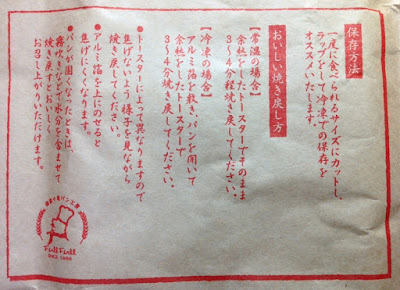 保存方法
一度に食べられるサイズにカットし、
ラップをして冷凍での保存を
オススメいたします。
おいしい焼き戻し方
【常温の場合】
余熱をしたトースターでそのまま
3〜4分程焼き戻してください。
【冷凍の場合】
アルミ箔を敷き、パンを開いて
余熱をしたトースターで、
3〜4分焼き戻してください。
●トースターによって異なりますので
焦げないよう、様子を見ながら
焼き戻してください。
●アルミ箔を上にのせると
焦げにくくなります。
●パンが固くなったときは、
霧吹きなどで水分を含ませて
焼き戻すとおいしく
お召し上がりいただけます。
FullFull